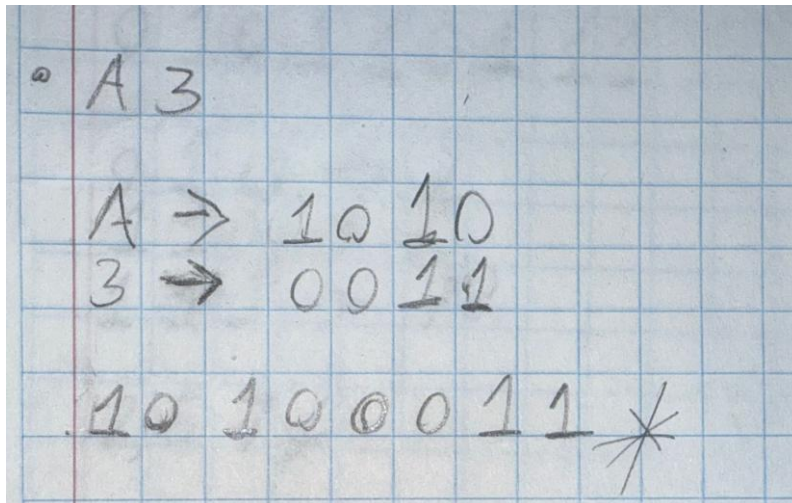 • A 3
A → 1010
3 → 0011
10100011 *